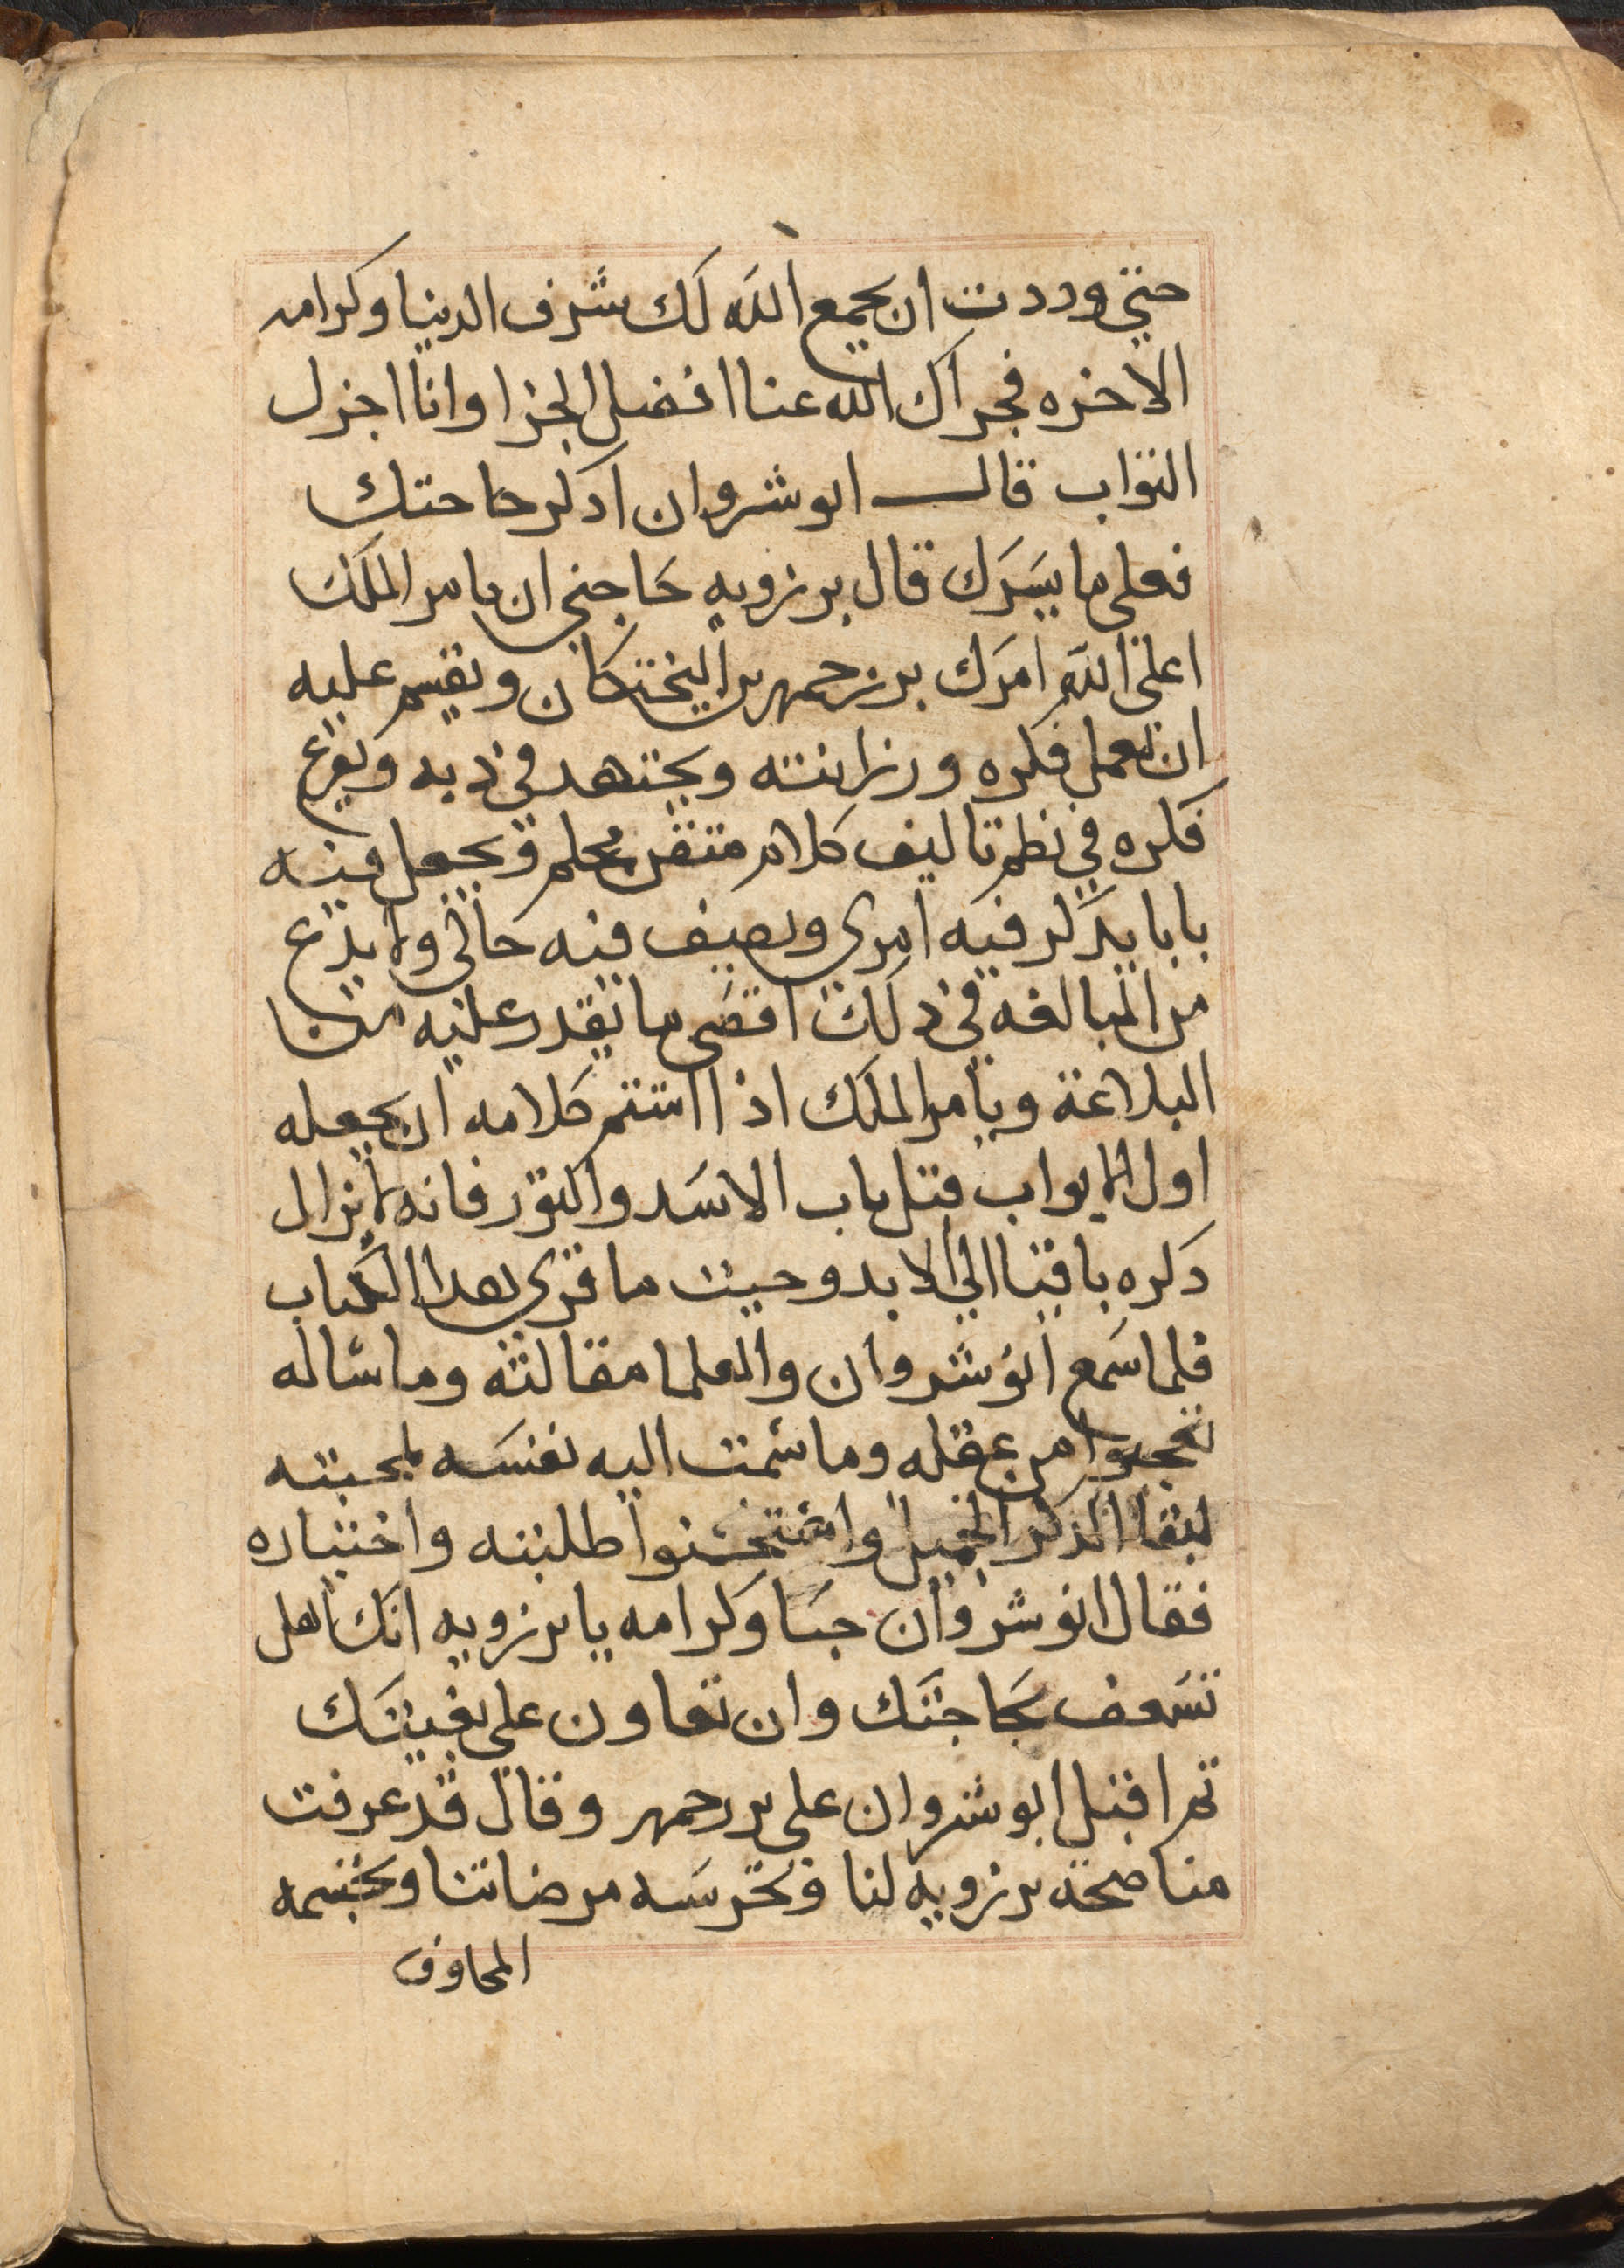 حتي وددت ان يجمع الله لك شرف الدنيا وكرامه
الاخره فجزاك الله عنا افضل الجزا واناا اجزل
الثواب قال انوشروان اذكر حاجتك
فعلى ما يسرك قال برزويه حاجتي ان يامر الملك
اعلى الله امرك بزرجمهر بن البختكان ويقسم عليه
ان يعمل فكره ورزانته ويجتهد في ذيه ويفرغ
فكره في نظم تاليف كلام متقن محكم ويجعل فيه
بابا يذكر فيه امري ويصف فيه حالي ولا يدع
من المبالغه في ذلك اقصى ما يقدر عليه من
البلاغة ويامر الملك اذا استتم كلامه ان يجعله
اول الابواب قبل باب الاسد والثور فانه لا يزال
ذكره باقيا الي الابد وحيث ما قري هذا الكتاب
فلما سمع انوشروان والعلما مقالته وما ساله
تعجبوا من عقله وما سمت اليه نفسه لمحبته
لبقا الذكر الجميل واستحسنوا طلبته واختياره
فقال انوشروان حبا وكرامه يا برزويه انك اهل
تسعف بحاجتك وان تعاون علي بغيتك
ثم اقبل انوشروان علي بزرجمهر وقال قد عرفت
مناصحة برزويه لنا وتحرسه مرضاتنا وتجشمه
المخاوف